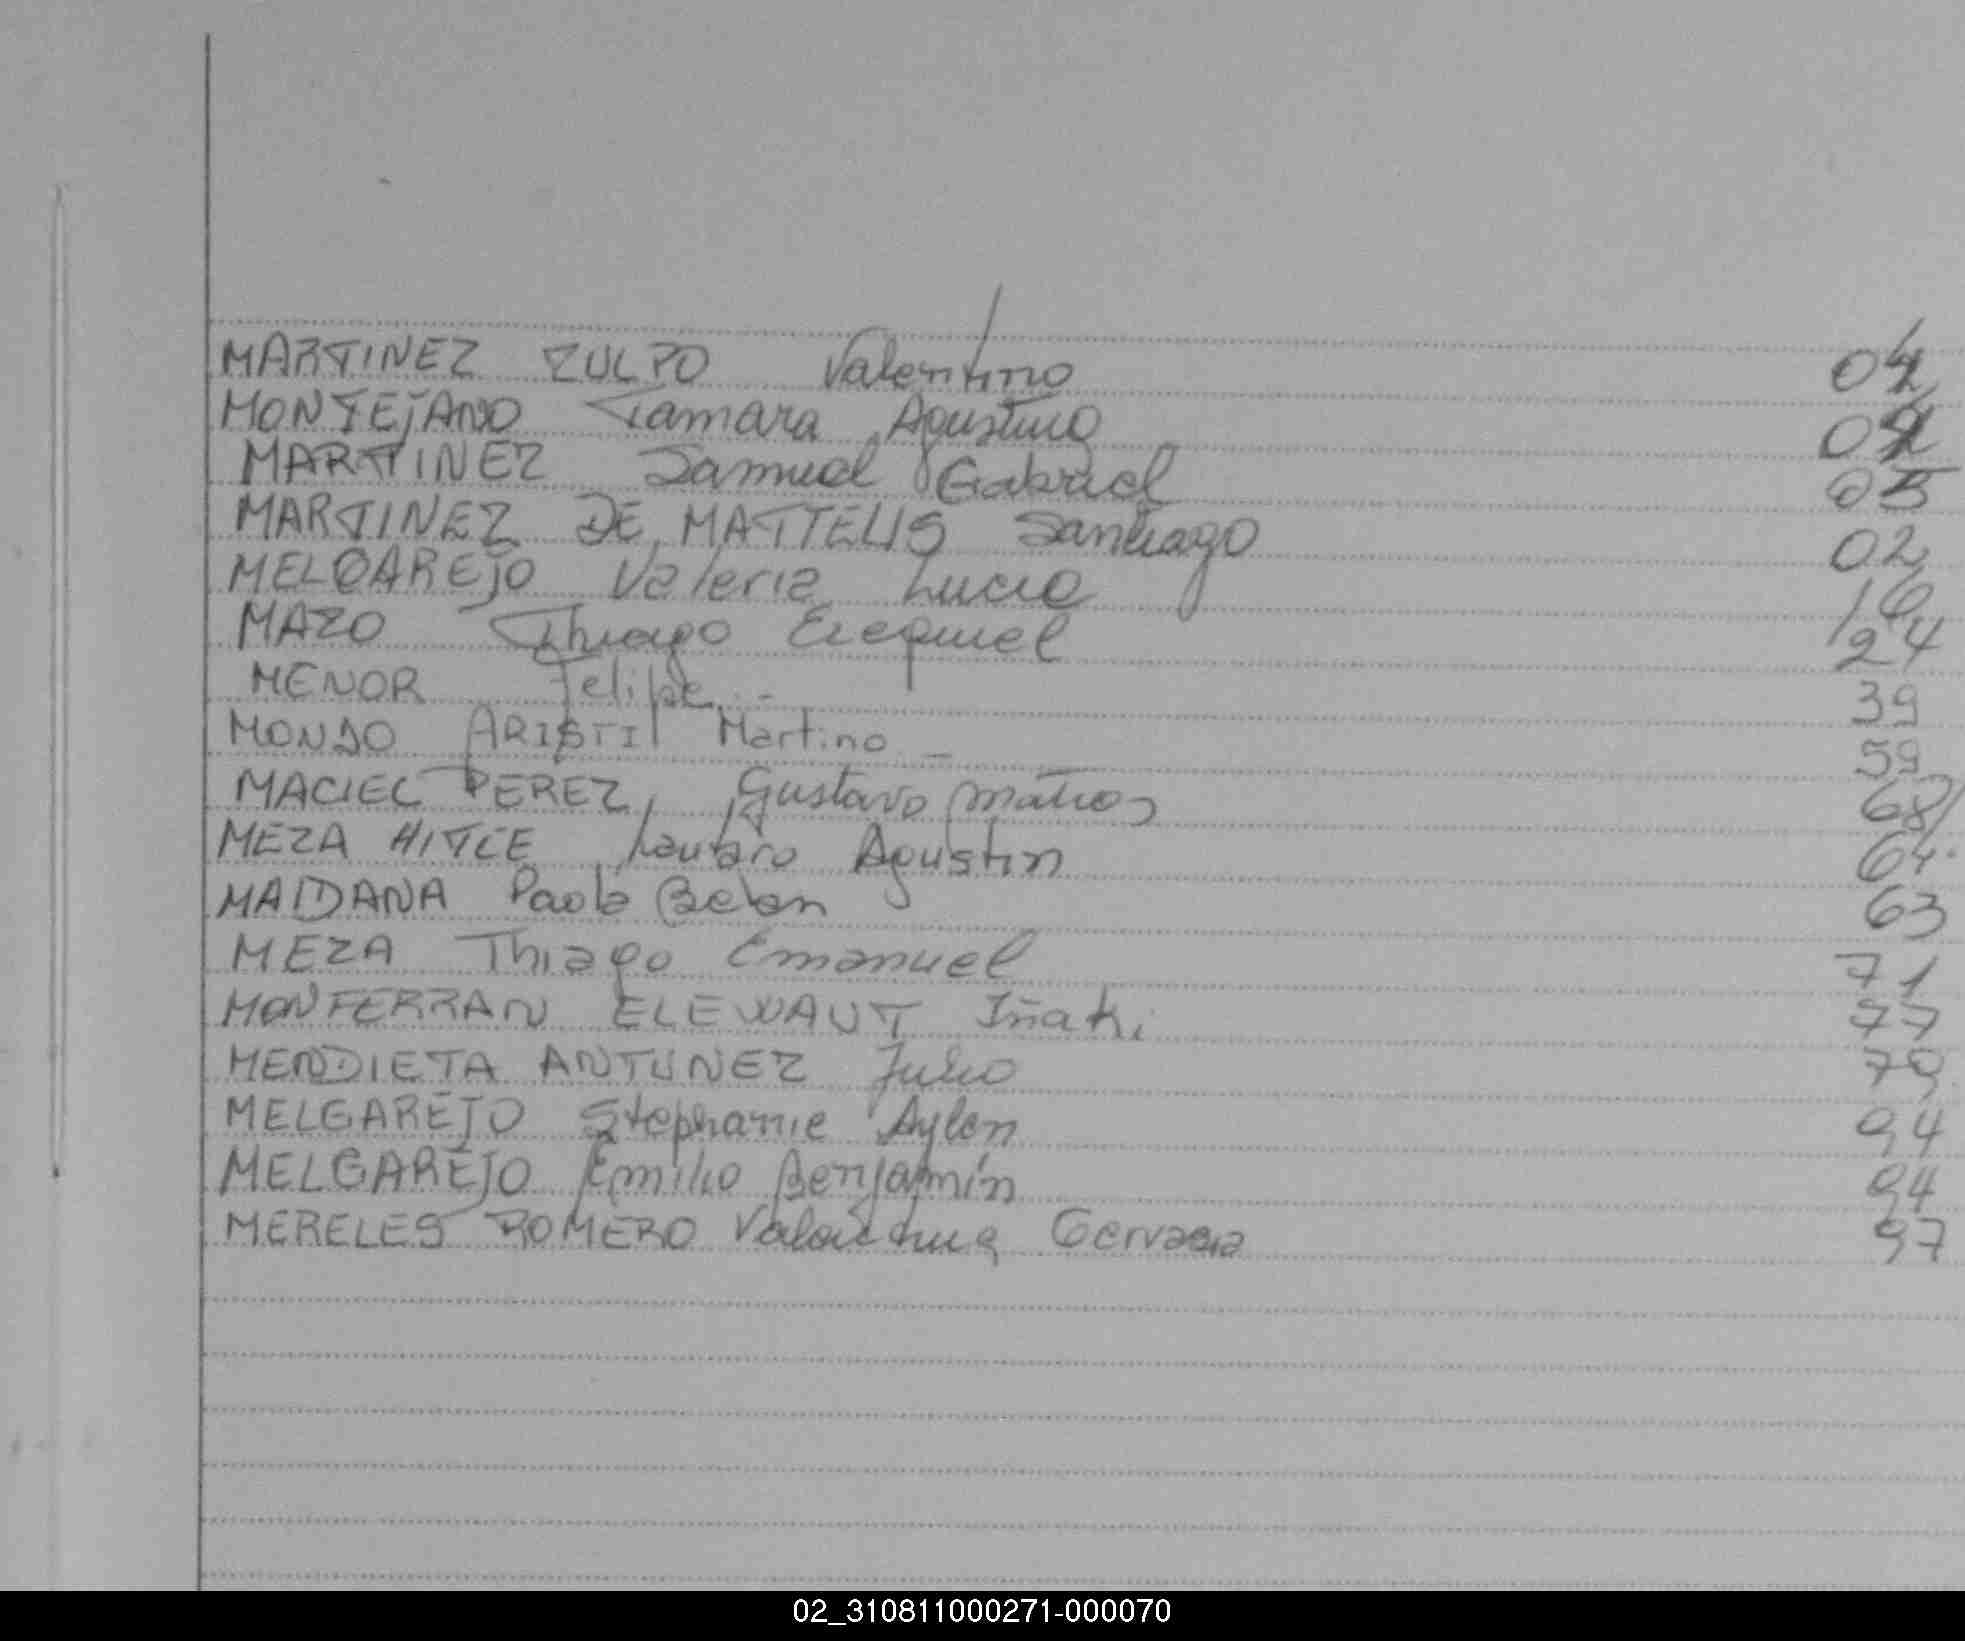 MARTINEZ ZULPO Valentino 04
MONTEJANO Tamara Agustina
MARTINEZ Samuel Gabriel 05
MARTINEZ DE MATTEUS Santiago 02
MELGAREJO Valeria Lucia 16
MAZO Thiago Ezequiel 24
MENOR Felipe 39
MONDO ARISTI Martino 59
MACIEL PEREZ Gustavo Matias 68
MEZA HITCE Lautaro Agustin 64
MAIDANA Paola Belen 63
MEZA Thiago Emanuel 71
MONFERRAN ELEWAUT Iñaki 77
MENDIETA ANTUNEZ Julio 79
MELGAREJO Stephanie Aylen 94
MELGAREJO Emilio Benjamín 94
MERELES ROMERO Valentina Gervasia 97
02_310811000271-000070